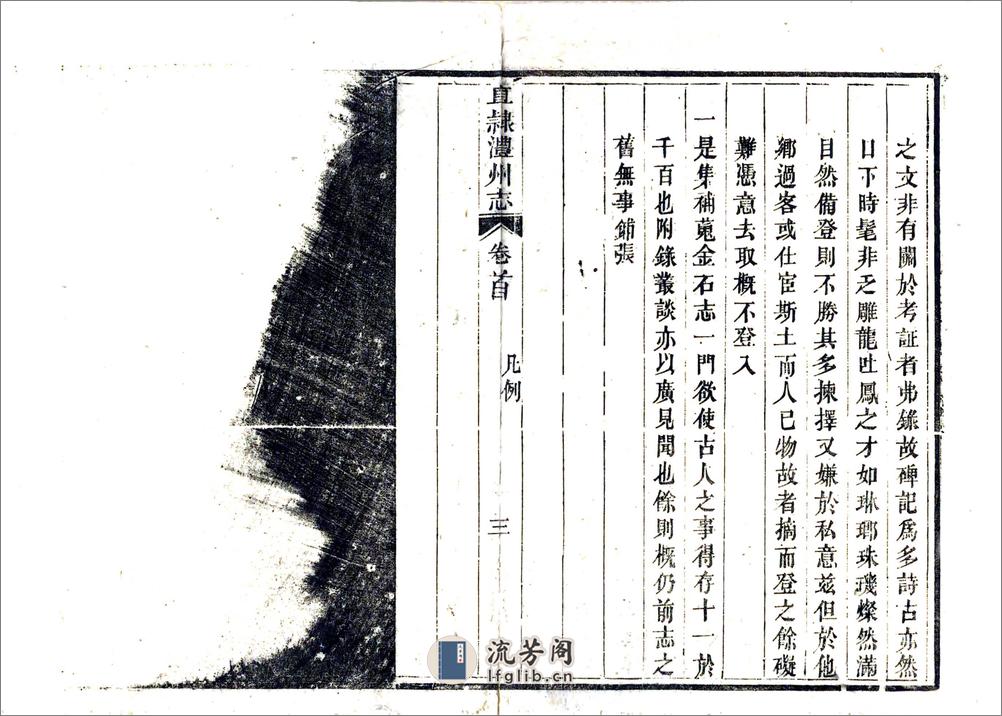 之文非有關於考証者弗錄故碑記爲多詩古亦然
日下時髦非乏雕龍吐鳳之才如琳瑯珠璣燦然滿
目然備登則不勝其多揀擇又嫌於私意茲但於他
鄉過客或仕宦斯土而人已物故者摘而登之餘礙
難憑意去取概不登入
一是集補蒐金石志一門欲使古人之事得存十一於
千百也附錄叢談亦以廣見聞也餘則概仍前志之
舊無事鋪張
直隸澧州志
卷首
凡例
三
流芳阁
lfglib.cn